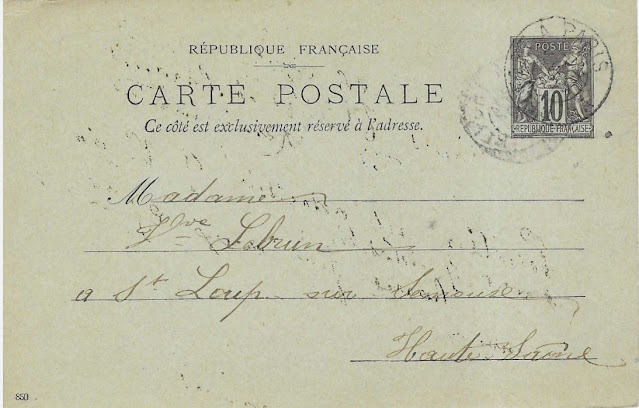 RÉPUBLIQUE FRANÇAISE
CARTE POSTALE
Ce côté est exclusivement réservé à l'adresse.
POSTE
10
RÉPUBLIQUE FRANÇAISE
A PARIS
Madame
Vve Lebrun
a St Loup sur Semouse
Haute Saône
850